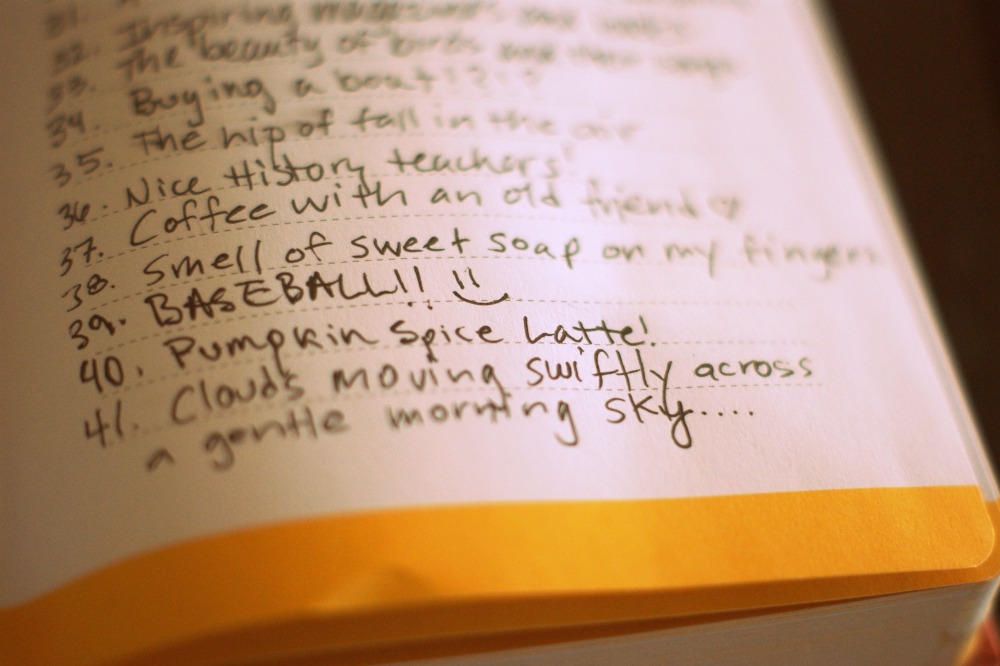 31.
32. Inspiring
33. The beauty of birds and their songs
34. Buying a boat!?!?
35. The nip of fall in the air
36. Nice History teachers!
37. Coffee with an old friend
38. Smell of sweet soap on my fingers
39. BASEBALL!!
40. Pumpkin Spice Latte!
41. Clouds moving swiftly across
a gentle morning sky.....